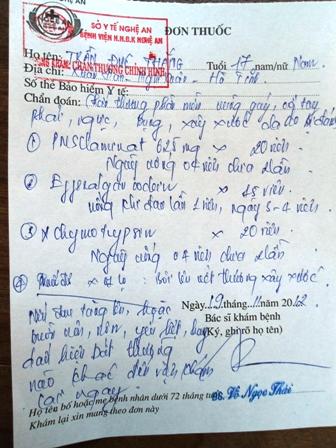 SỞ Y TẾ NGHỆ AN
BỆNH VIỆN H.N.Đ.K NGHỆ AN
ĐƠN THUỐC
Họ tên: TRẦN ĐỨC THẮNG Tuổi 17 nam/nữ Nam
KHOA CHẤN THƯƠNG CHỈNH HÌNH
Địa chỉ: Xuân Nghi Xuân - Hà Tĩnh
Số thẻ Bảo hiểm Y tế:
Chẩn đoán: Chấn thương phần mềm vùng gáy, cổ tay
phải, ngực, bụng, xây xước da do
① PMSClaminat 625 mg x 20 viên
Ngày uống 04 viên chia 2 lần
② Efferalgan codein x 15 viên
uống khi đau lần 1 viên, ngày 3-4 viên
③ αChymotrypsin x 20 viên
Ngày uống 04 viên chia 2 lần
④ x 01 lọ: bôi lên vết thương xây xước
Nếu đau tăng lên, hoặc
buồn nôn, nôn, yếu liệt, hay
dấu hiệu bất thường
nào khác đến viện khám
lại ngay.
Ngày tháng 11 năm 2012
Bác sĩ khám bệnh
(Ký, ghi rõ họ tên)
BS. Võ Ngọc Thái
Họ tên bố hoặc mẹ bệnh nhân dưới 72 tháng tuổi
Khám lại xin mang theo đơn này